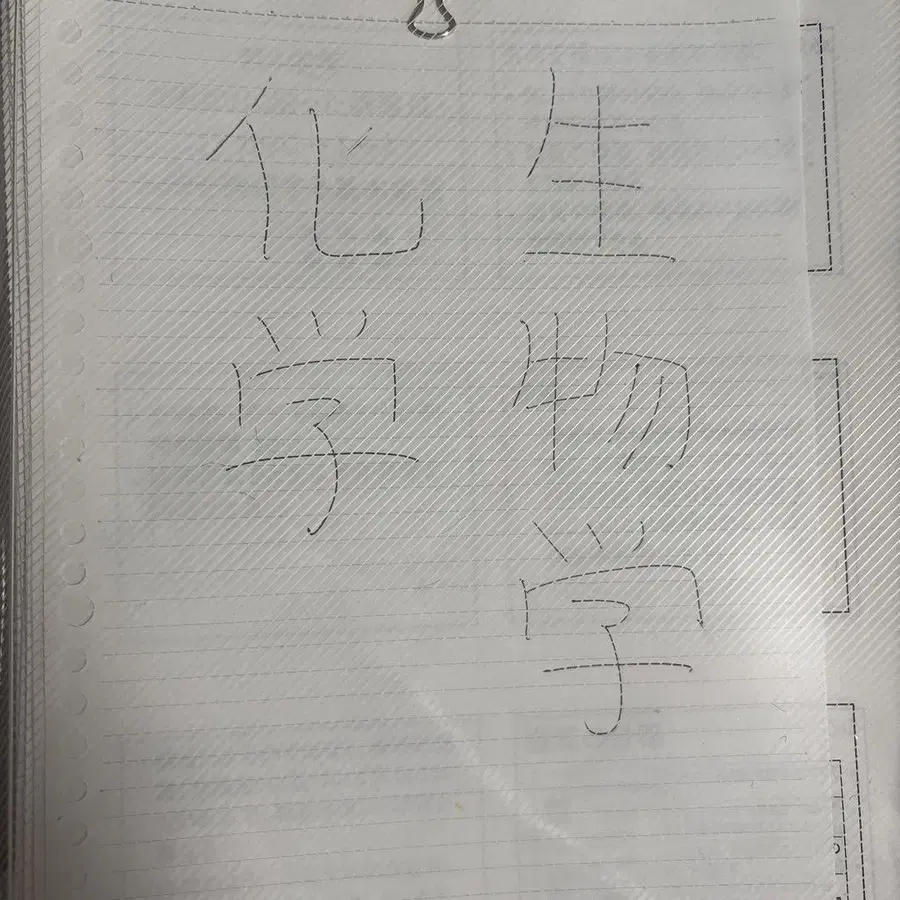 生物学
化学